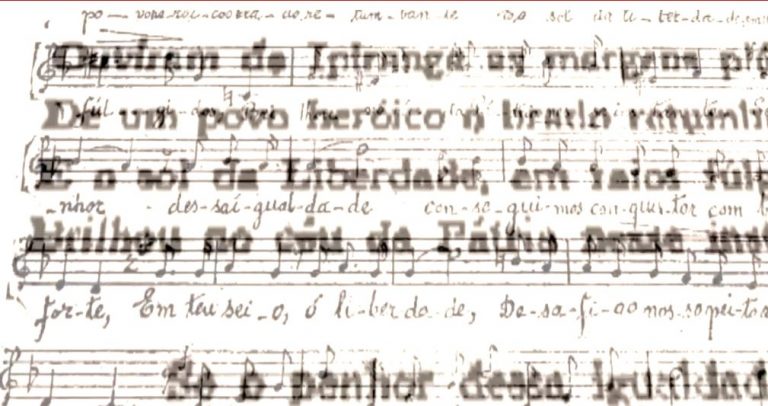 po - vohe-roi-coobra-do-re-tum-ban-te sol da li-ber-da-de, em
Ouviram do Ipiranga as margens plá
fúl-gi-dos,
De um povo heróico o brado retumba
E o sol da Liberdade, em raios fúlg
-nhor des-sai-gual-da-de con-se-gui-mos con-quis-tar com b
Brilhou no céu da Pátria nesse inst
for-te, Em teu sei-o, ó li-ber-da-de, De-sa-fi-ao nos-so pei-to a
Se o penhor dessa igualdad